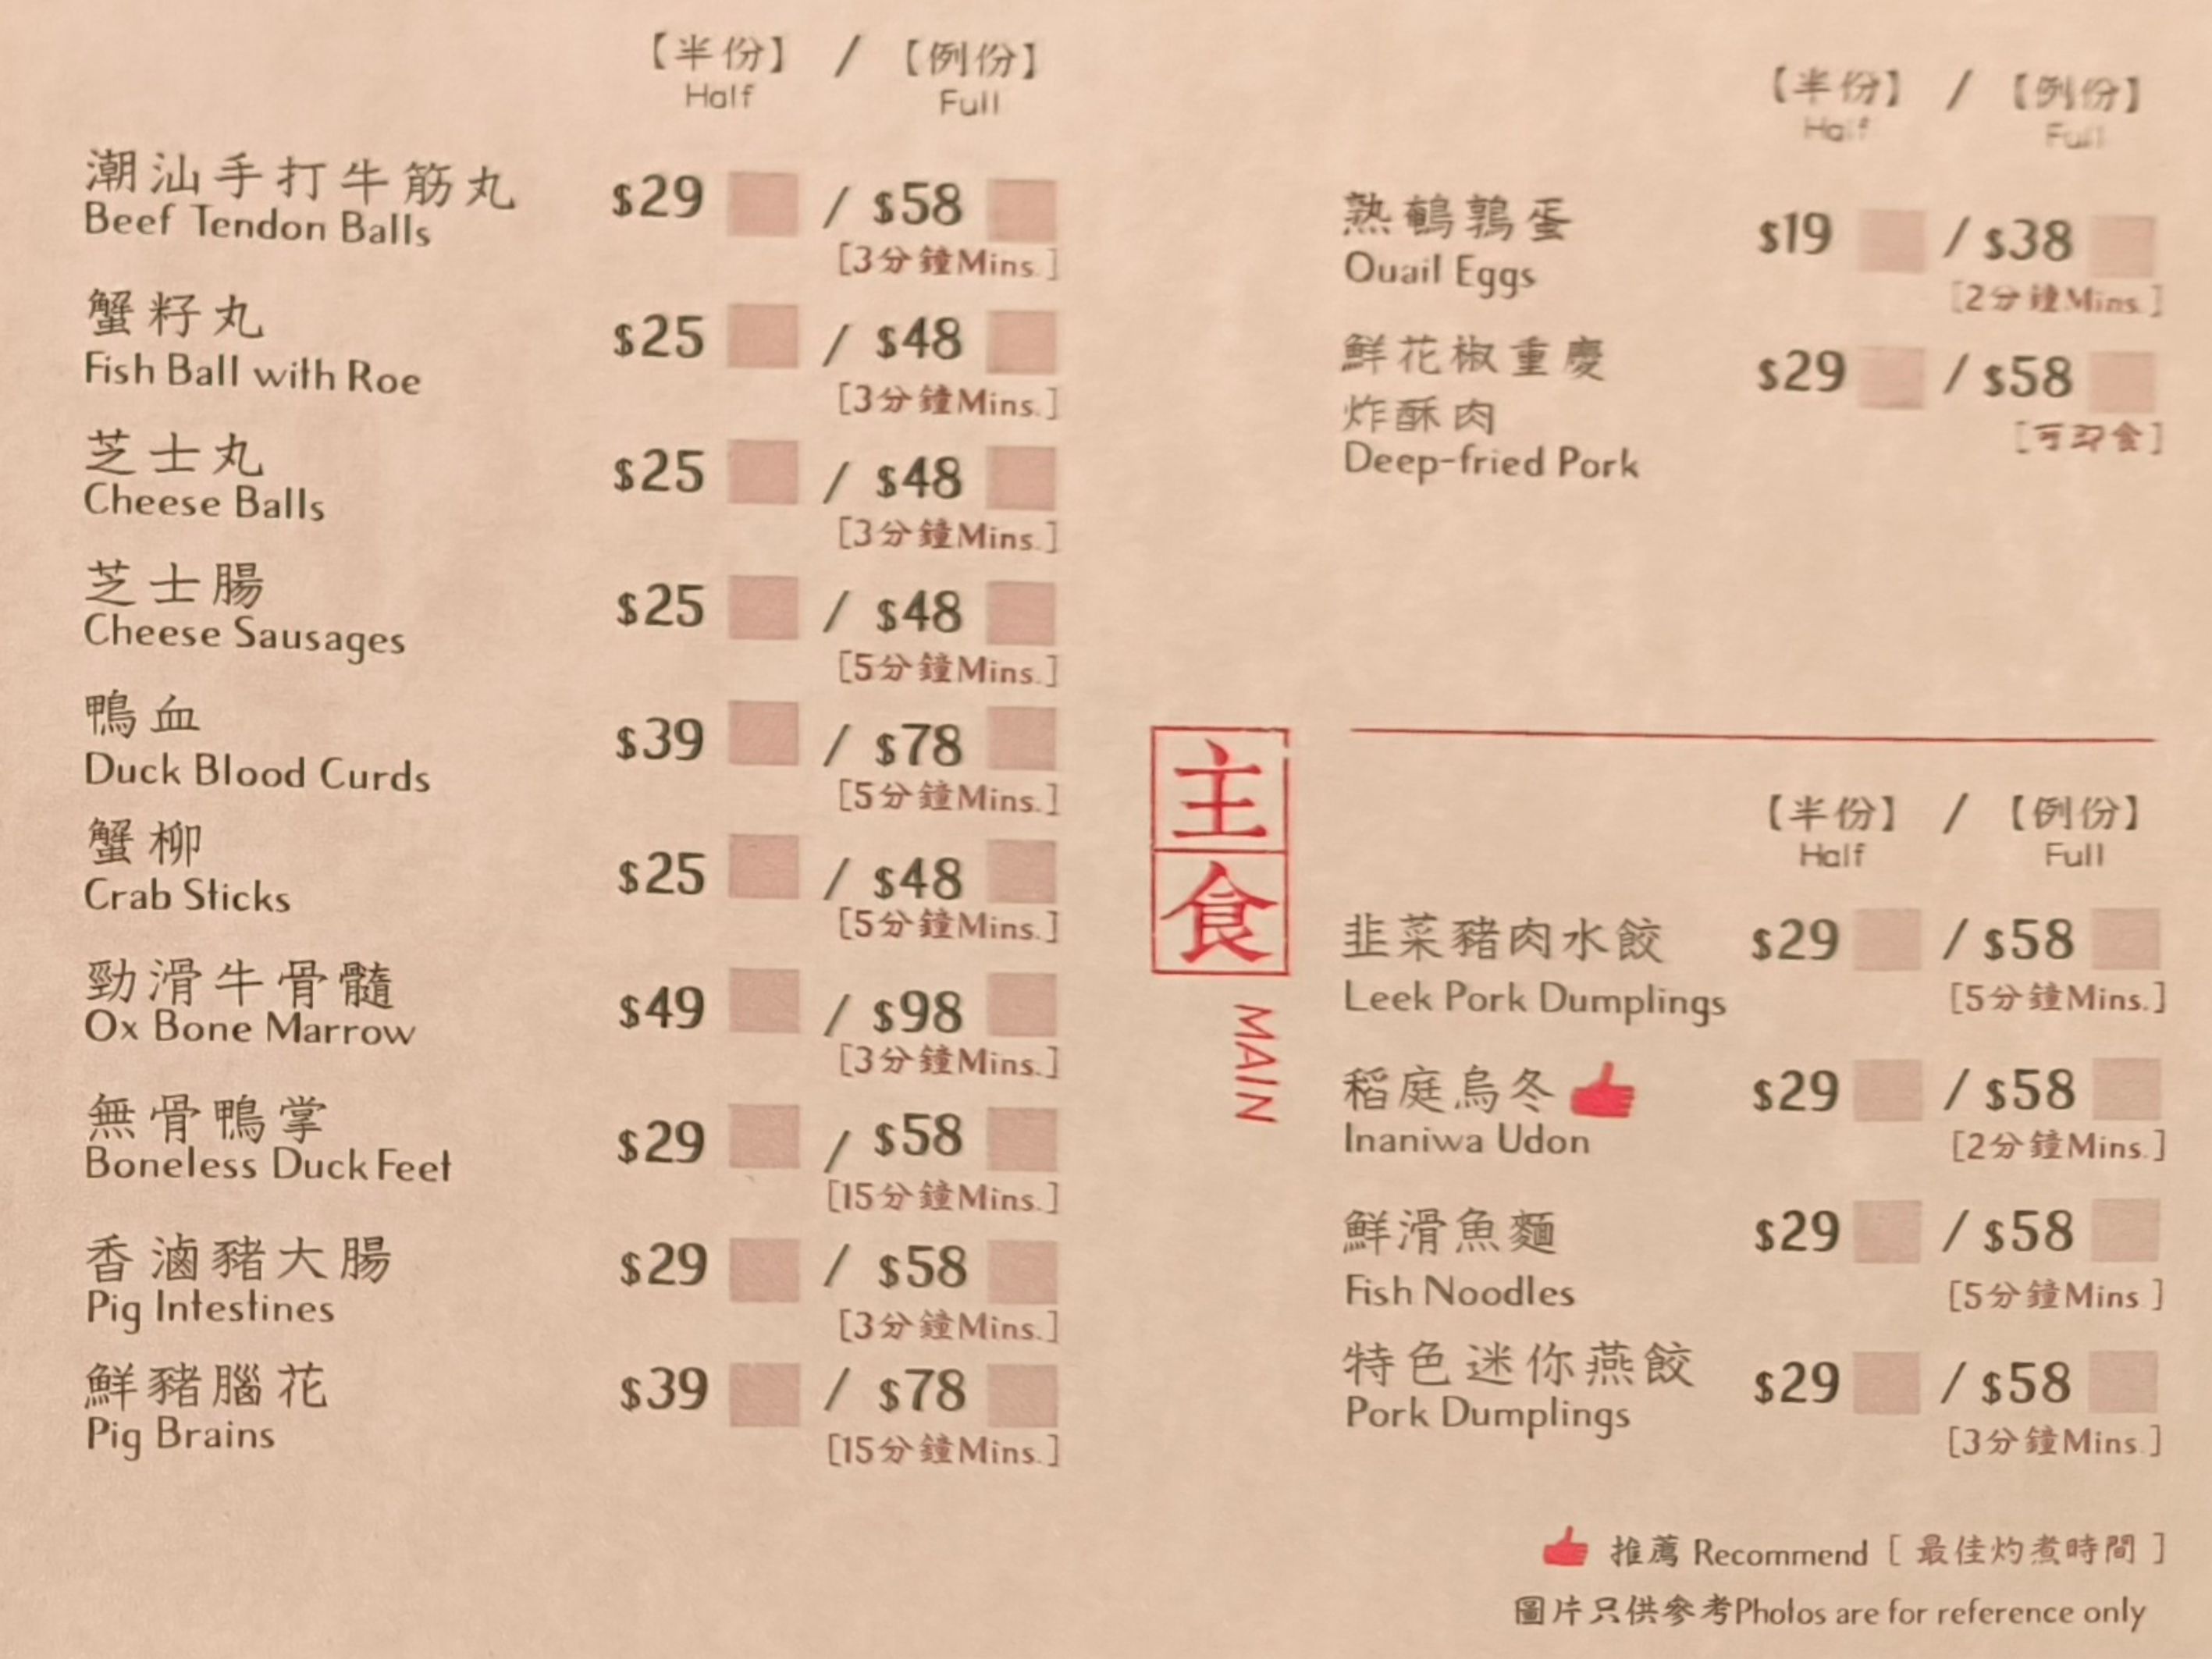 【半份】 / 【例份】
Half Full
潮汕手打牛筋丸 $29 / $58
Beef Tendon Balls
[3分鐘Mins.]
蟹籽丸 $25 / $48
Fish Ball with Roe
[3分鐘Mins.]
芝士丸 $25 / $48
Cheese Balls
[3分鐘Mins.]
芝士腸 $25 / $48
Cheese Sausages
[5分鐘Mins.]
鴨血 $39 / $78
Duck Blood Curds
[5分鐘Mins.]
蟹柳 $25 / $48
Crab Sticks
[5分鐘Mins.]
勁滑牛骨髓 $49 / $98
Ox Bone Marrow
[3分鐘Mins.]
無骨鴨掌 $29 / $58
Boneless Duck Feet
[15分鐘Mins.]
香滷豬大腸 $29 / $58
Pig Intestines
[3分鐘Mins.]
鮮豬腦花 $39 / $78
Pig Brains
[15分鐘Mins.]
【半份】 / 【例份】
Half Full
熟鵪鶉蛋 $19 / $38
Quail Eggs
[2分鐘Mins.]
鮮花椒重慶 $29 / $58
炸酥肉
[可即食]
Deep-fried Pork
主食
MAIN
【半份】 / 【例份】
Half Full
韭菜豬肉水餃 $29 / $58
Leek Pork Dumplings
[5分鐘Mins.]
稻庭烏冬 $29 / $58
Inaniwa Udon
[2分鐘Mins.]
鮮滑魚麵 $29 / $58
Fish Noodles
[5分鐘Mins.]
特色迷你燕餃 $29 / $58
Pork Dumplings
[3分鐘Mins.]
推薦 Recommend [最佳灼煮時間]
圖片只供參考Photos are for reference only